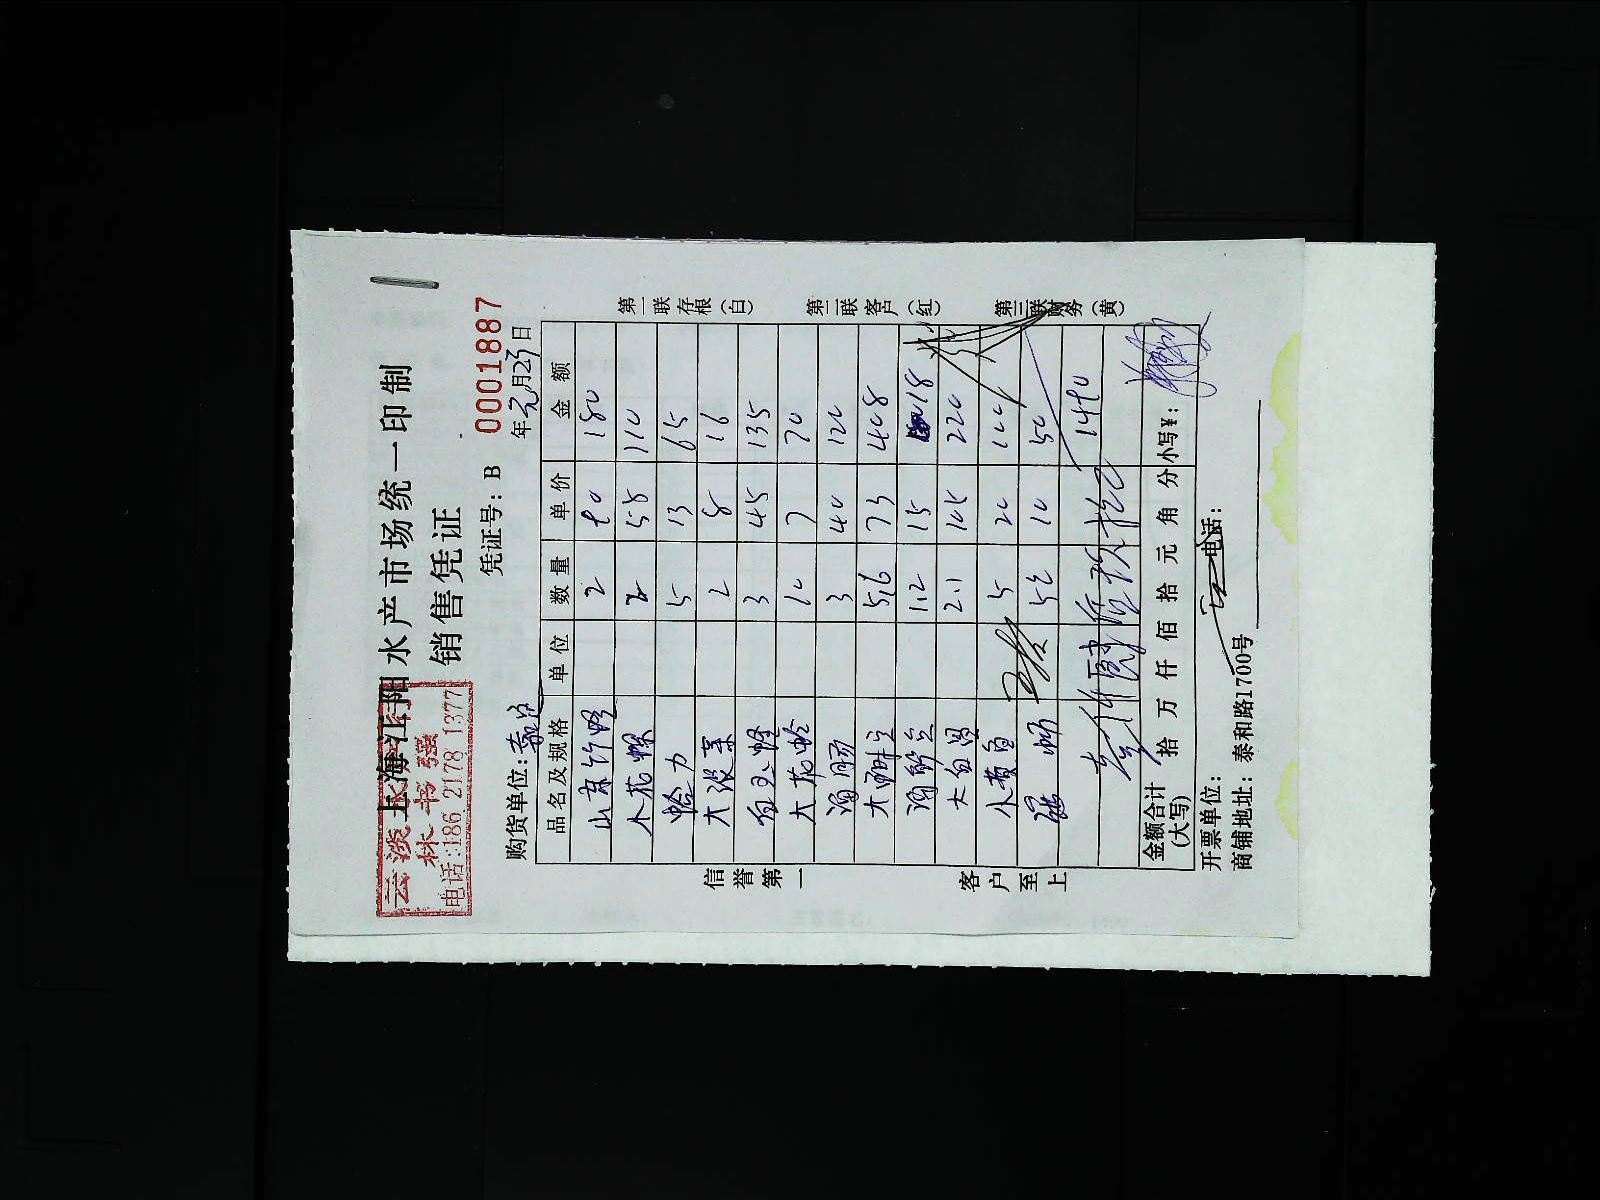 上海江阳水产市场统一印制
销售凭证
云淡
林书强
电话:186 2178 1377
凭证号：B 0001887
购货单位： 年元月23日
品名及规格 单位 数量 单价 金额
山东竹蛏 2 90 180
小花螺 2 55 110
蛤力 5 13 65
大淡菜 2 8 16
3 45 135
大花蛤 10 7 70
海肠 3 40 120
5.6 73 408
1.2 15 18
大白 2.1 105 220
小黄鱼 5 20 100
5 10 50
1490
金额合计
(大写) 拾 万 仟 佰 拾 元 角 分 小写¥：
开票单位： 电话：
商铺地址：泰和路1700号
信誉第一
客户至上
第一联存根（白）
第二联客户（红）
第三联财务（黄）